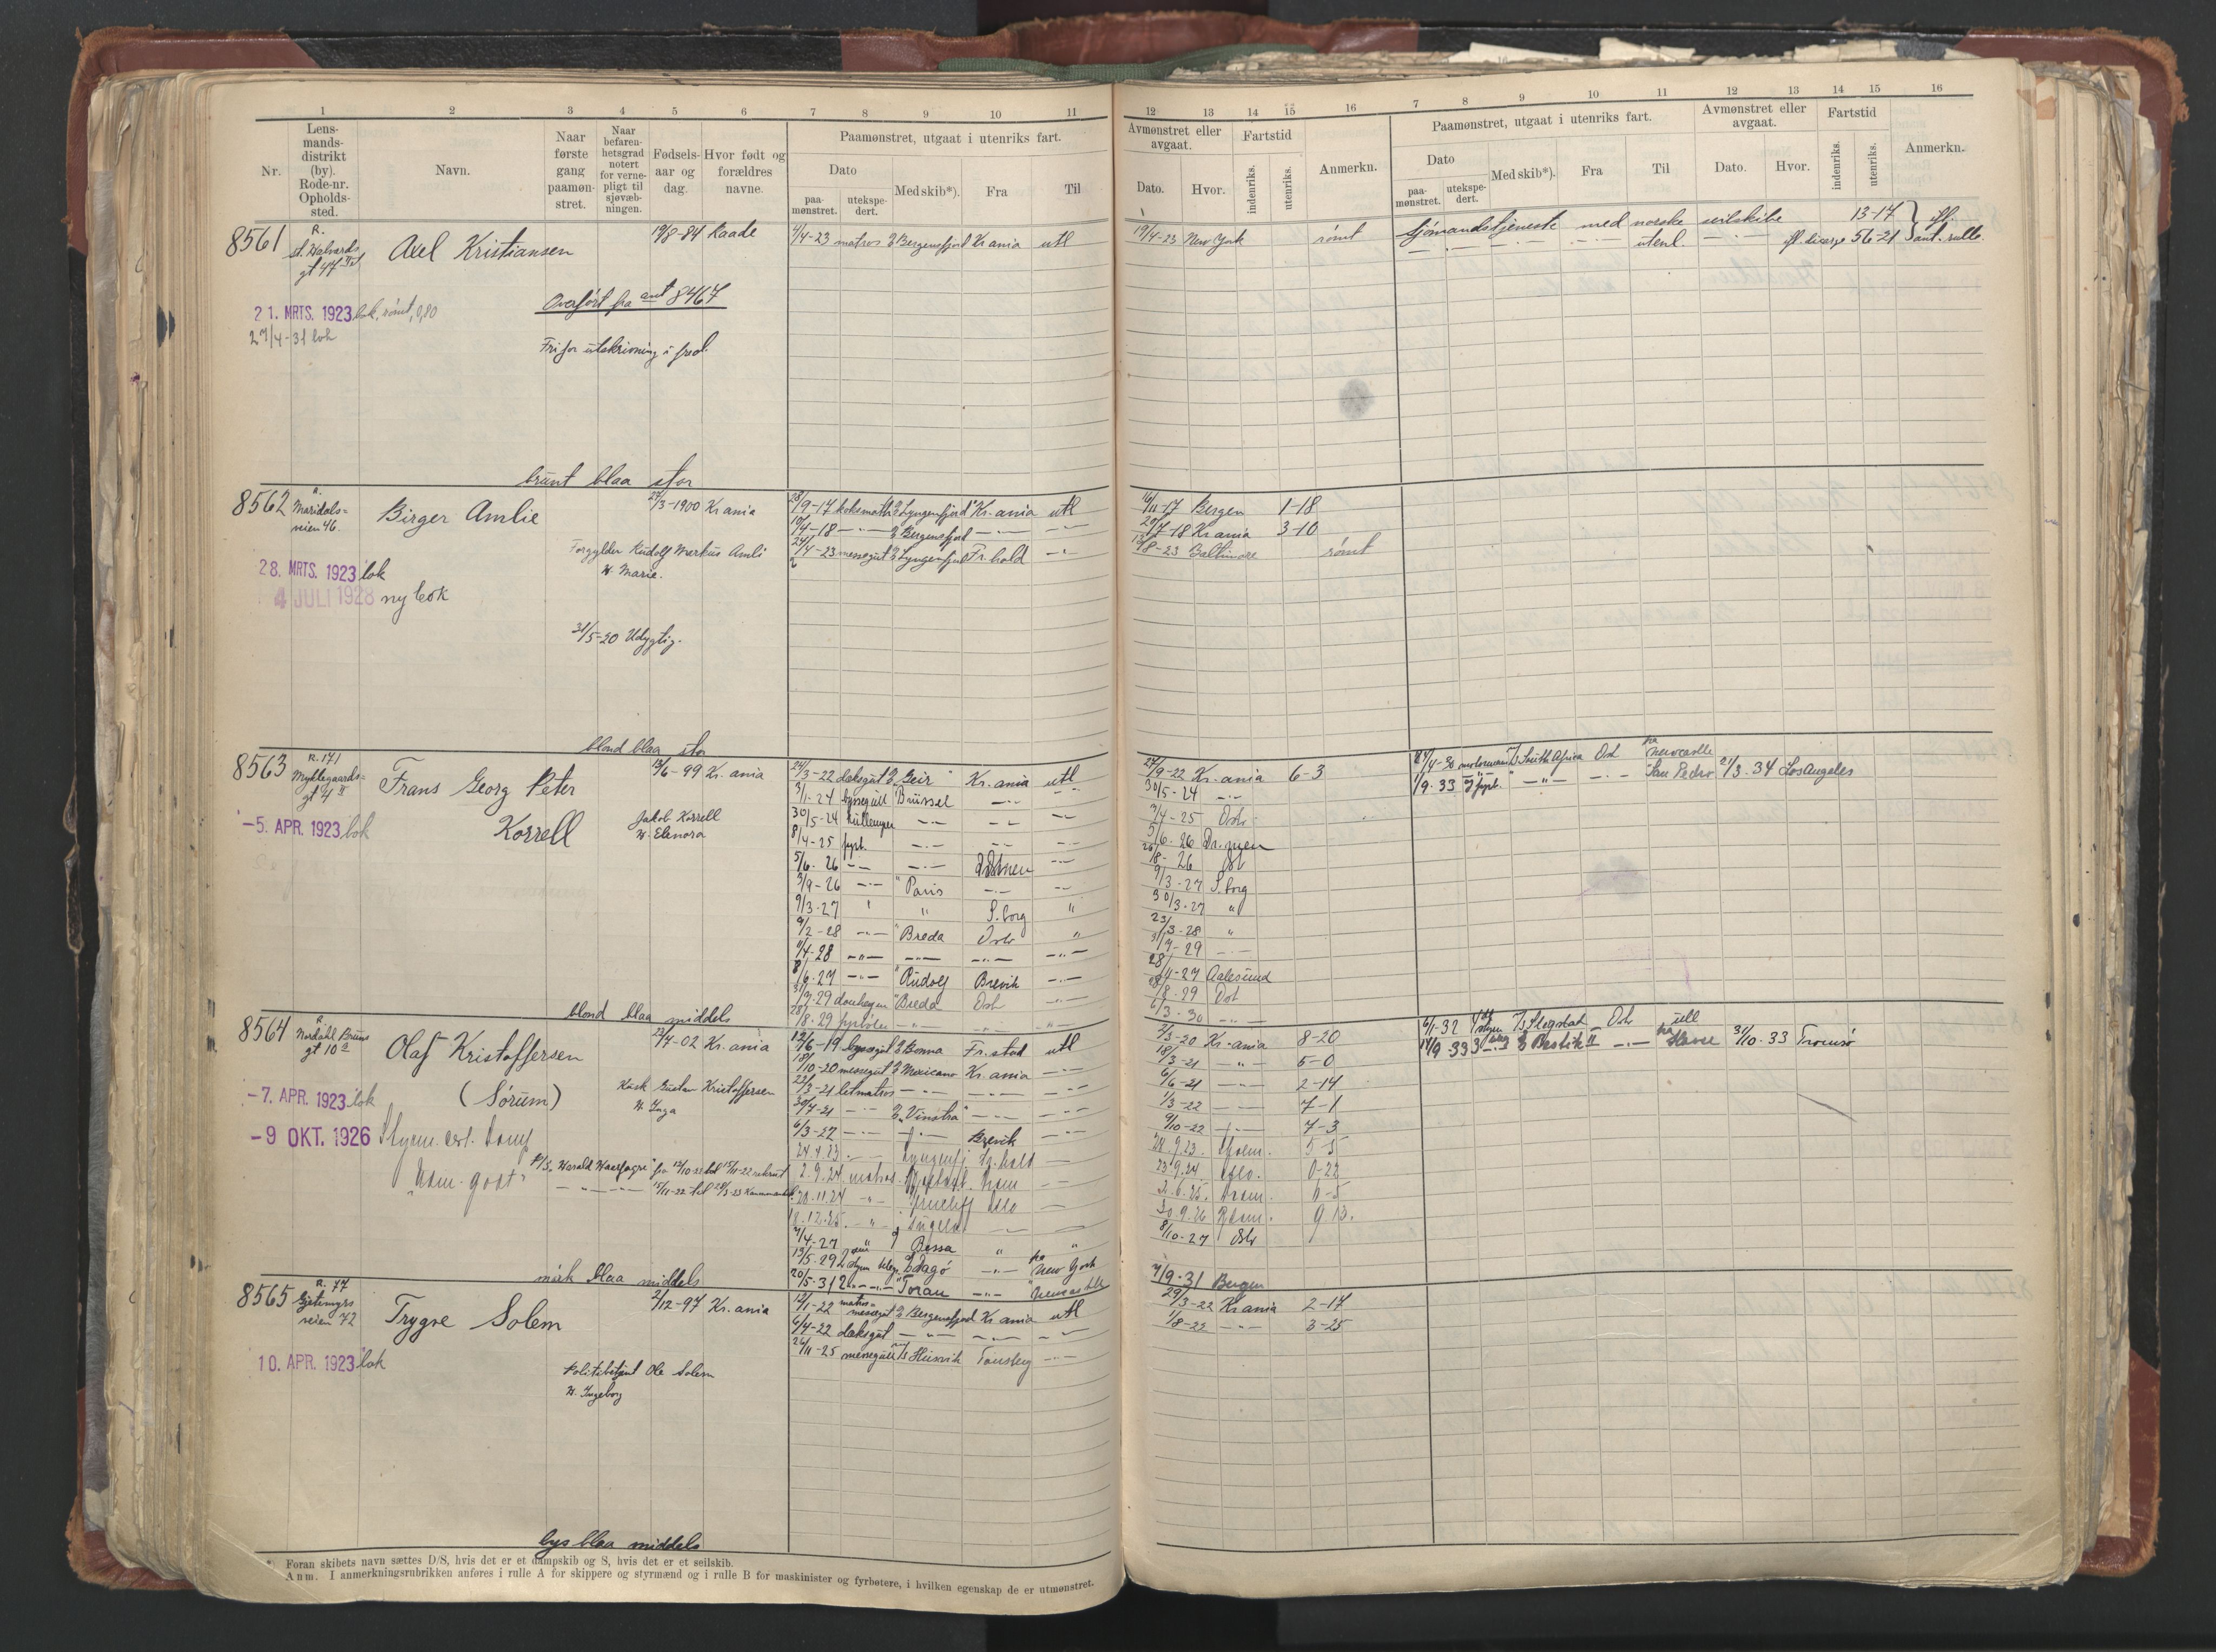 1 2 3 4 5 6 7 8 9 10 11
Nr.
Lens-
mands-
distrikt
(by).
Rode-nr.
Opholds-
sted.
Navn.
Naar
første
gang
paamøn-
stret.
Naar
befaren-
hetsgrad
notert
for verne-
pligt til
sjøvæb-
ningen.
Fødsels-
aar og
dag.
Hvor født og
forældres
navne.
Paamønstret, utgaat i utenriks fart.
Dato
paa-
mønstret.
utekspe-
dert.
Med skib*).
Fra
Til
12 13 14 15 16 7 8 9 10 11 12 13 14 15 16
Avmønstret eller
avgaat.
Dato.
Hvor.
Fartstid
indenriks.
utenriks.
Anmerkn.
Paamønstret, utgaat i utenriks fart.
Dato
paa-
mønstret.
utekspe-
dert.
Med skib*).
Fra
Til
Avmønstret eller
avgaat.
Dato.
Hvor.
Fartstid
indenriks.
utenriks.
Anmerkn.
8561
R.
st. Halvards
gt 47
Axel Kristiansen
19/8-84 Raade
4/4-23 matros Bergensfjord Kr ania utl
19/4-23 New York rømt
Sjømandstjeneste med norske seilskibe 13-17
utenl. 56-21 ant. rulle
21. MRTS. 1923 bok, rømt, 0,80
27/4-31 bok
Overført fra ant 8467
Fri for utskrivning i fred.
brunt blaa stor
8562
Maridals-
veien 46.
Birger Amlie
27/3-1900 Kr ania
Forgylder Rudolf Markus Amli
H. Marie.
28. MRTS. 1923 bok
4 JULI 1928 ny bok
31/5-20 Udygtig.
28/9-17 koksmath Lyngenfjord Kr. ania utl
10/4-18 —"— Bergensfjord —"— —"—
24/4-23 messegut Lyngenfjord Fr. hald —"—
16/11-17 Bergen 1-18
20/7-18 Kr ania 3-10
13/8-23 Baltimore rømt
blond blaa stor
8563
R. 171
Myklegaards-
gt 4 II
Frans Georg Peter
Korrell
13/6-99 Kr. ania
Jakob Korrell
H. Elenora
-5. APR. 1923 bok
24/3-22 dæksgut Geir Kr. ania utl
3/1-24 byssegutt Brüssel —"— —"—
30/5-24 —"— —"— —"—
8/4-25 fyrb. —"— —"— —"—
5/6-26 —"— —"— —"—
3/9-26 —"— Paris —"— —"—
9/3-27 " " S. borg "
9/2-28 —"— Breda Oslo "
11/4-28 —"— —"— —"— —"—
8/6-27 —"— Rudolf Brevik —"—
31/7-29 donkeym Breda Osl —"—
28/8-29 fyrbøter —"— —"— —"—
27/9-22 Kr. ania 6-3
30/5-24 —"—
3/4-25 Oslo
5/6-26 Dr.men
26/8-26 Osl
9/3-27 S. borg
30/3-27 "
23/3-28 "
31/7-29 —"—
28/11-27 Aalesund
28/8-29 Osl
6/3-30 —"—
24/4-30 motormann South Africa Osl fra Newcastle
1/9-33 fyrb. —"— —"— San Pedro 21/3-34 Los Angeles
blond blaa middels
8564
Nordahl Bruns
gt 10
Olaf Kristoffersen
(Sørum)
22/7-02 Kr. ania
Kusk Gustav Kristoffersen
H. Inga
-7. APR. 1923 bok
-9 OKT. 1926
P/S. Harald Haarfagre fra 12/10-22 til 15/11-22 rekrut
—"— 15/11-22 til 28/3-23
12/6-19 byssegut Bonna Fr. stad utl
18/10-20 messegut Mexicano Kr. ania —"—
22/3-21 letmatros —"— —"— —"—
30/7-21 —"— Vinstra —"— —"—
6/3-22 —"— —"— Brevik —"—
24.4.23. —"— Lyngenfj Fr. hald —
2.9.24 matros —
28.11.24 —"— Oslo —
18.12.25. —"— —
4/4-27 " Bessa " "
13/5-29 Dagø —"— fra New York
20/5-31 —"— Toran —"—
2/3-20 Kr. ania 8-20
18/3-21 —"— 5-0
6/6-21 —"— 2-14
1/3-22 —"— 7-1
9/10-22 —"— 7-3
5-5
23.9.24. Oslo. 0-22
0-5
30.9.26 9.13.
8/10-27 Oslo
7/9-31 Bergen
6/1-32 Oslo utl
14/9 33 —"— fra 31/10-33 Tromsø
mørk blaa middels
8565
R. 77
Gjetemyrs
veien 72
Trygve Solem
2/12-97 Kr. ania
Politibetjent Ole Solem
H. Ingeborg
10. APR. 1923 bok
12/1-22 messegut Bergensfjord Kr ania utl
6/4-22 dæksgut —"— —"— —"—
26/11-25 messegutt Tønsberg —"—
29/3-22 Kr ania 2-17
1/8-22 —"— 3-25
lys blaa middels
*) Foran skibets navn sættes D/S, hvis det er et dampskib og S, hvis det er et seilskib.
Anm. I anmerkningsrubrikken anføres i rulle A for skippere og styrmænd og i rulle B for maskinister og fyrbøtere, i hvilken egenskap de er utmønstret.